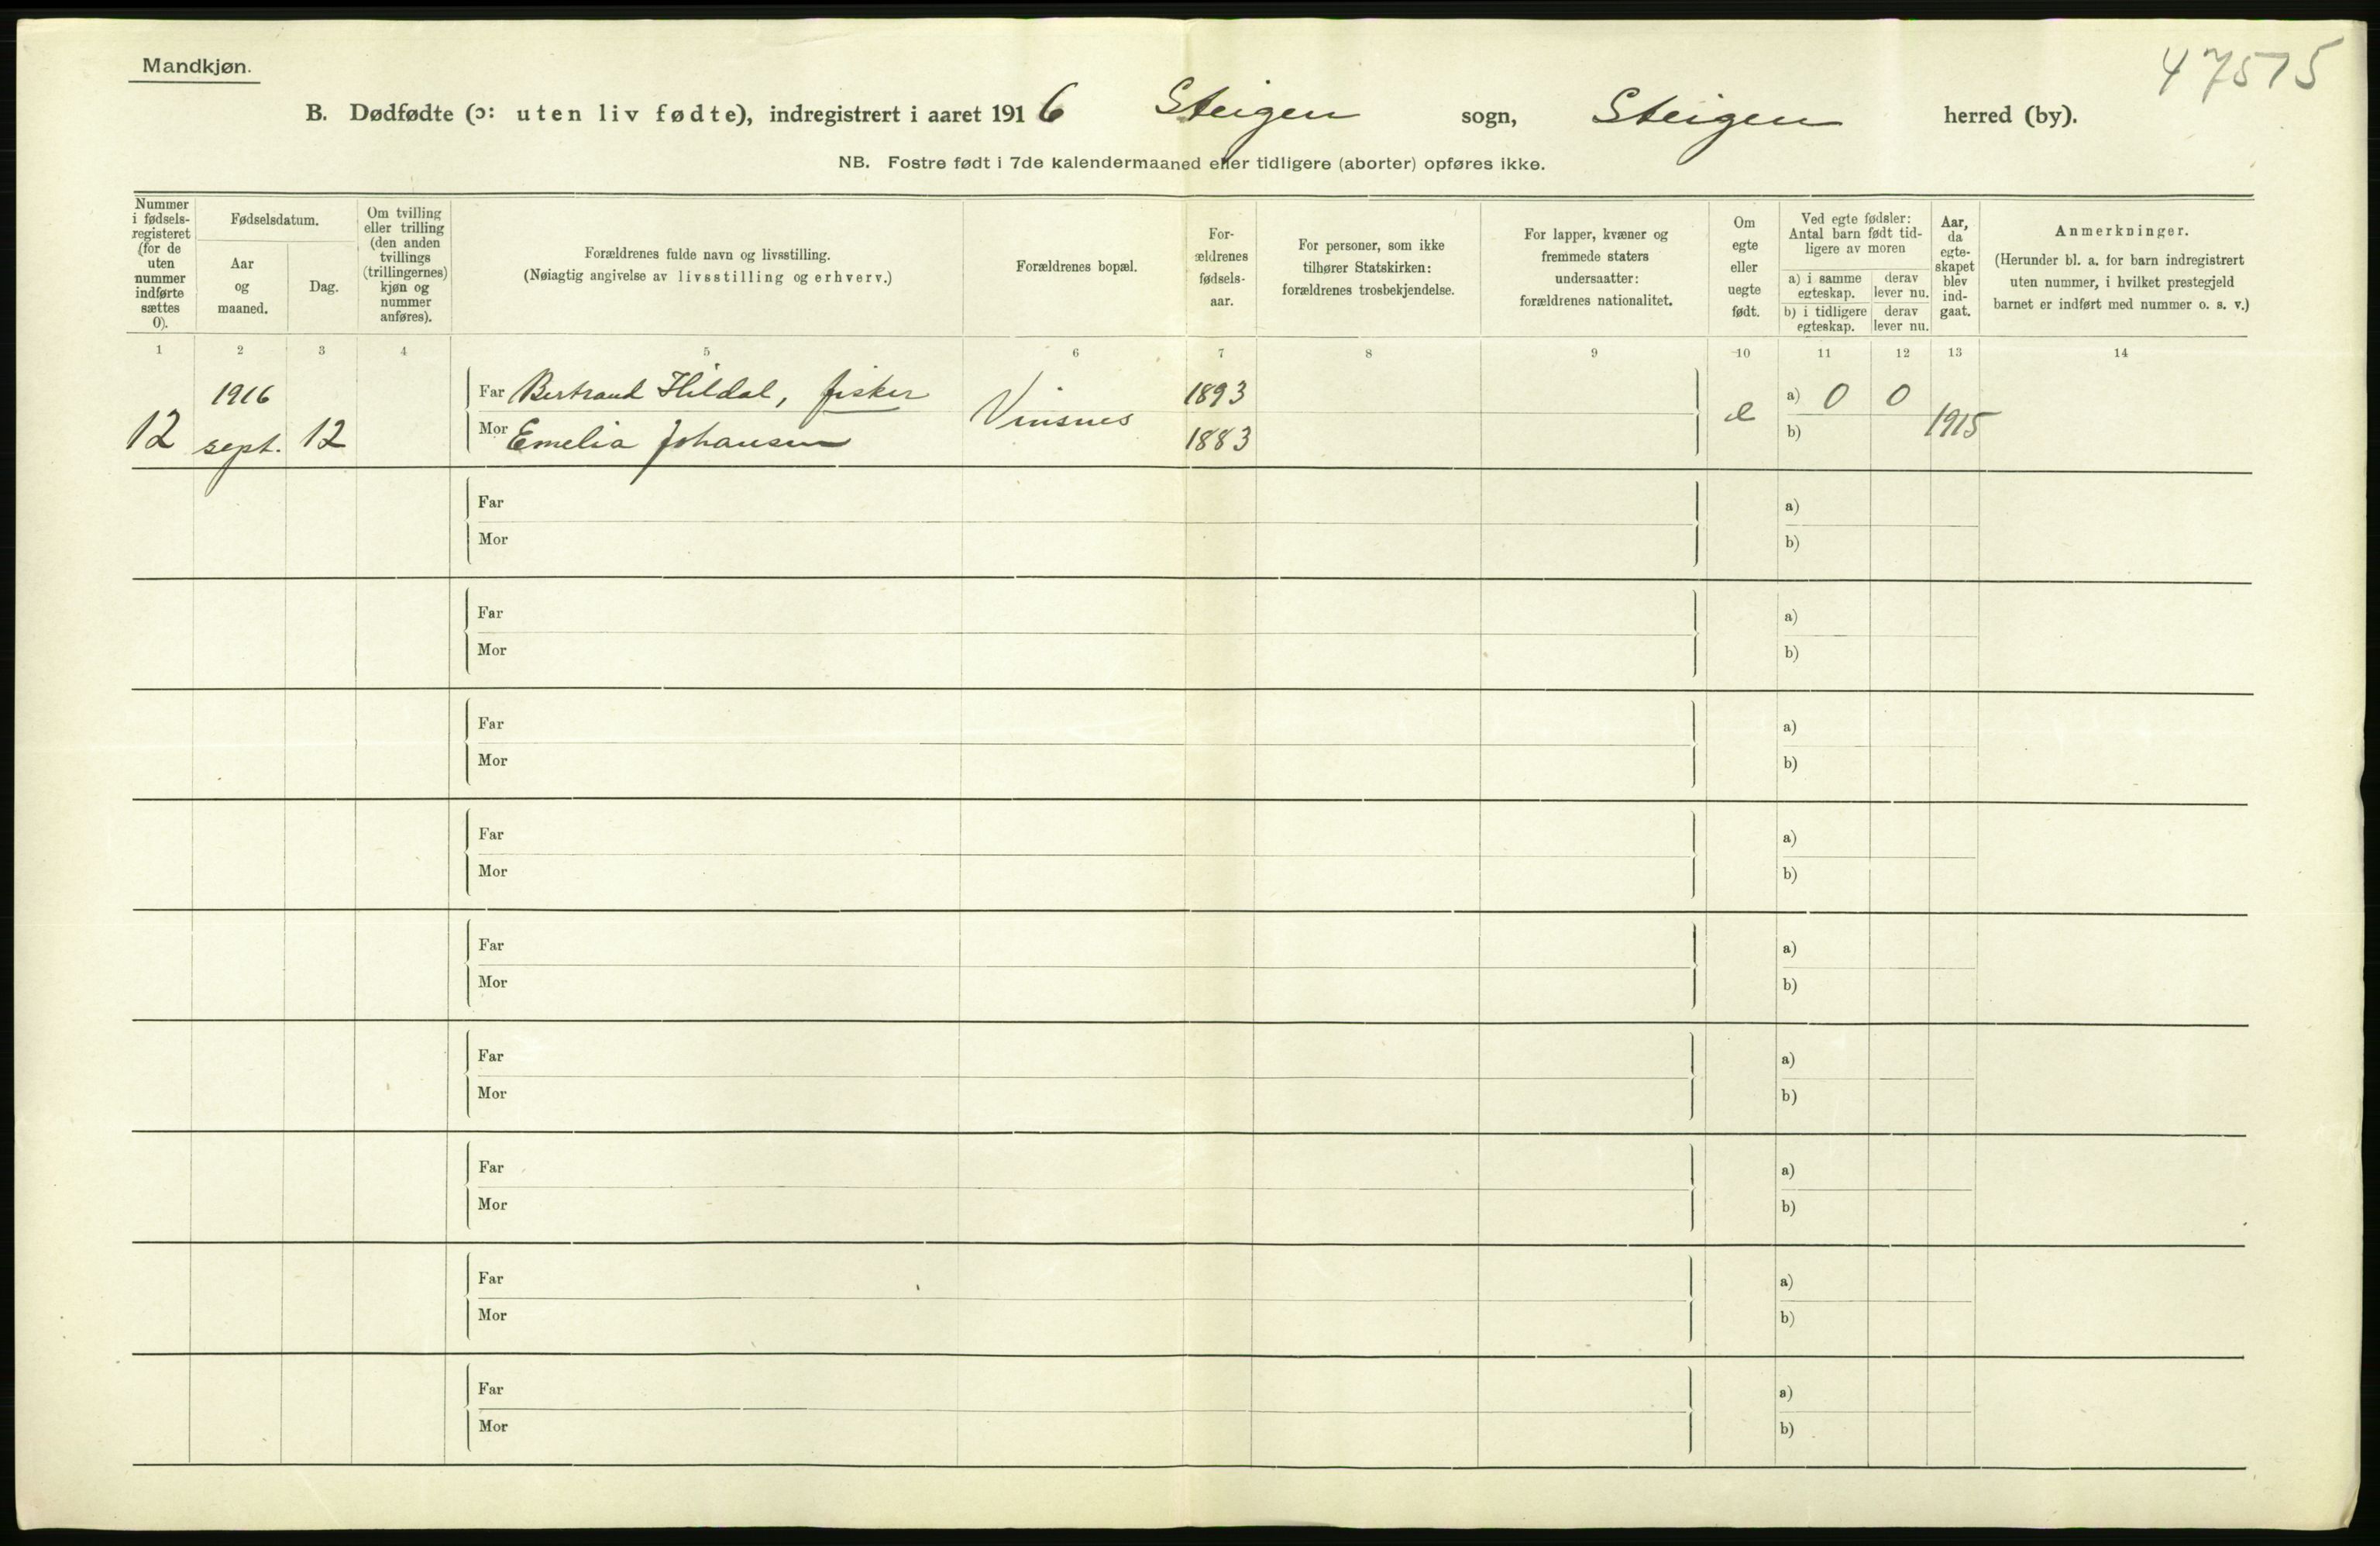 Mandkjøn.
47575
B. Dødfødte (ɔ: uten liv fødte), indregistrert i aaret 1916 Steigen sogn, Steigen herred (by).
NB. Fostre født i 7de kalendermaaned eller tidligere (aborter) opføres ikke.
Nummer
i fødsels-
registeret
(for de
uten
nummer
indførte
sættes
0).
Fødselsdatum.
Aar
og
maaned.
Dag.
Om tvilling
eller trilling
(den anden
tvillings
(trillingernes)
kjøn og
nummer
anføres).
Forældrenes fulde navn og livsstilling.
(Nøiagtig angivelse av livsstilling og erhverv.)
Forældrenes bopæl.
For-
ældrenes
fødsels-
aar.
For personer, som ikke
tilhører Statskirken:
forældrenes trosbekjendelse.
For lapper, kvæner og
fremmede staters
undersaatter:
forældrenes nationalitet.
Om
egte
eller
uegte
født.
Ved egte fødsler:
Antal barn født tid-
ligere av moren
a) i samme
egteskap.
derav
lever nu.
b) i tidligere
egteskap.
derav
lever nu.
Aar,
da
egte-
skapet
blev
ind-
gaat.
Anmerkninger.
(Herunder bl. a. for barn indregistrert
uten nummer, i hvilket prestegjeld
barnet er indført med nummer o. s. v.)
1 2 3 4 5 6 7 8 9 10 11 12 13 14
1916 Far Bertrand Hildal, fisker 1893 a) 0 0
12 sept. 12 Mor Emelia Johansen Vinsnes 1883 e b) 1915
Far a)
Mor b)
Far a)
Mor b)
Far a)
Mor b)
Far a)
Mor b)
Far a)
Mor b)
Far a)
Mor b)
Far a)
Mor b)
Far a)
Mor b)
Far a)
Mor b)